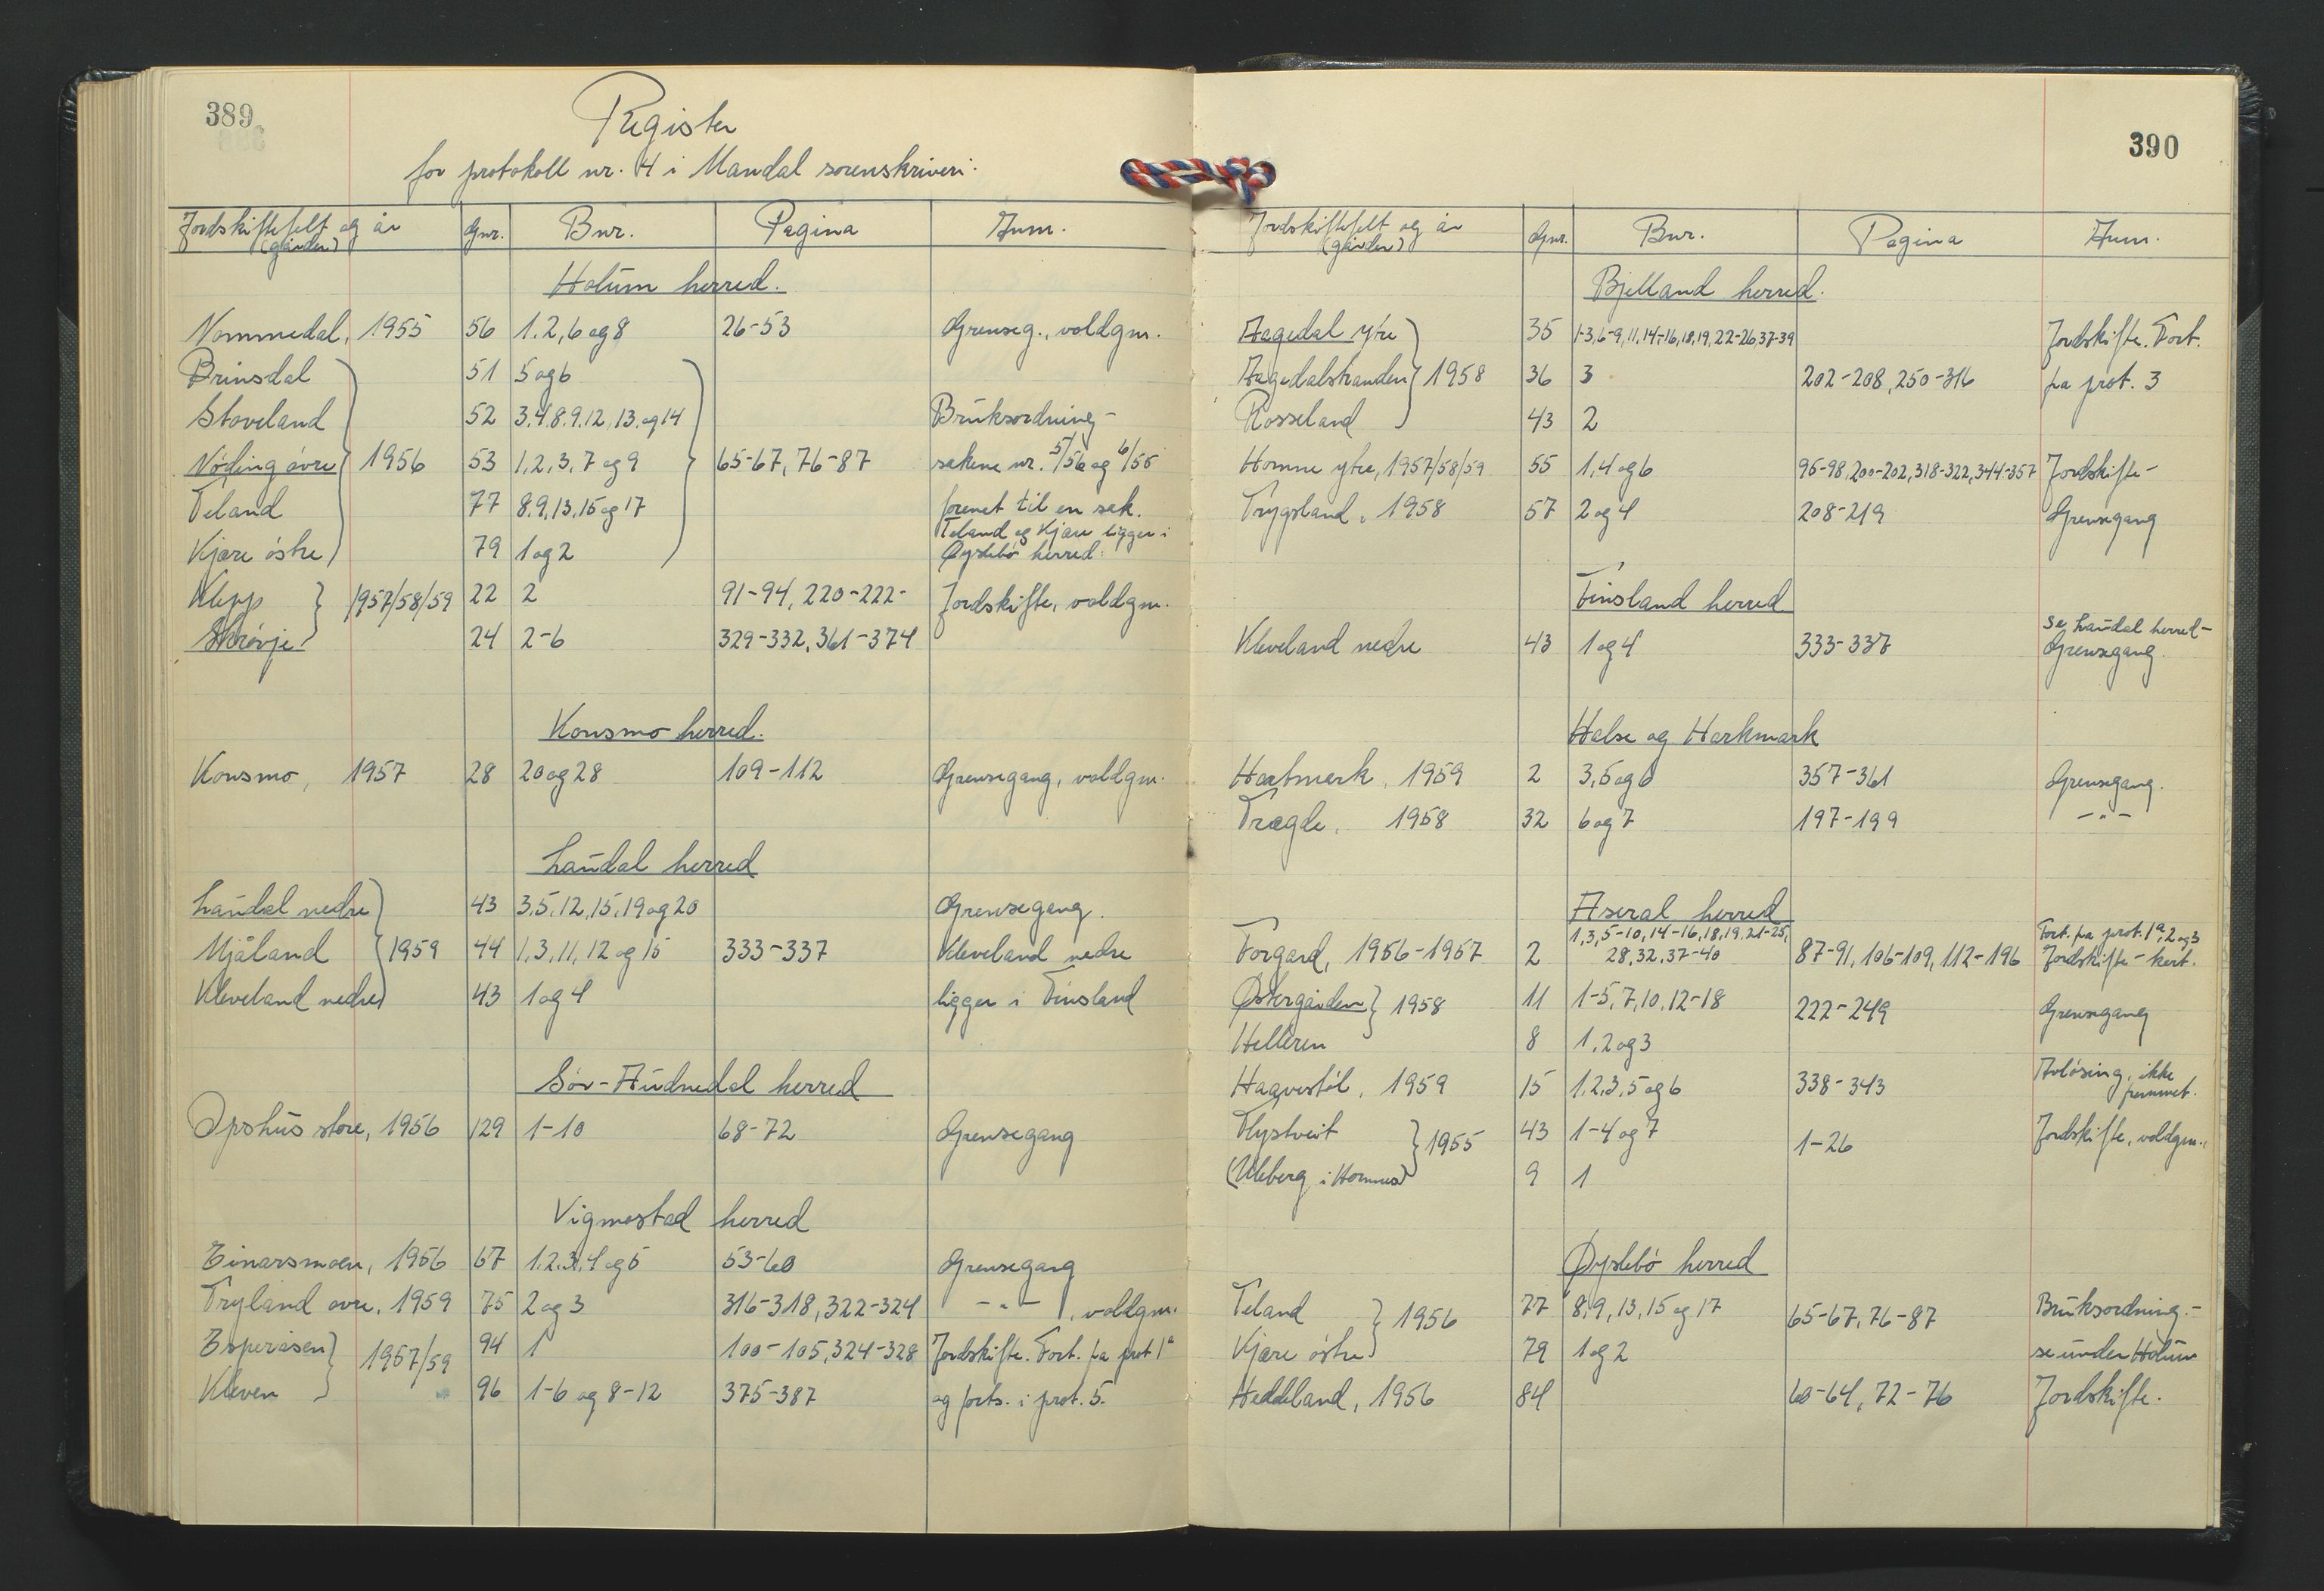 389
Register
for protokoll nr. 4 i Mandal sorenskriveri.
Jordskiftefelt og år (gården) Gnr. Bnr. Pagina Anm.
Holum herred.
Nommedal, 1955 56 1.2,6 og 8 26-53 Grenseg., voldgm.
Brinsdal 51 5 og 6
Stoveland 52 3.4.8.9.12,13.og 14 Bruksordning-
Nöding övre 1956 53 1,2,3,7 og 9 65-67, 76-87 sakene nr. 5/56 og 6/55
Teland 77 8,9,13,15 og 17 forenet til en sak.
Teland og Kjære ligger i
Kjære östre 79 1 og 2 Øyslebö herred.
Klepp 1957/58/59 22 2 91-94, 220-222- Jordskifte, voldgm.
Skrövje 24 2-6 329-332, 361-374
Konsmo herred.
Konsmo, 1957 28 20 og 28 109-112 Grensegang, voldgm.
Laudal herred
Laudal nedre 43 3,5,12,15,19 og 20 Grensegang.
Mjåland 1959 44 1,3,11,12 og 15 333-337 Kleveland nedre
Kleveland nedre 43 1 og 4 ligger i Finsland
Sör-Audnedal herred
Opshus store, 1956 129 1-10 68-72 Grensegang
Vigmostad herred
Einarsmoen, 1956 67 1.2.3.4 og 5 53-60 Grensegang
Tryland övre, 1959 75 2 og 3 316-318, 322-324 -"- , voldgm.
Esperåsen 1957/59 94 1 100-105, 324-328 Jordskifte. Fort. fra prot 1a
Kleven 96 1-6 og 8-12 375-387 og forts. i prot. 5.
390
Jordskiftefelt og år (gården) Gnr. Bnr. Pagina Anm.
Bjelland herred.
Aagedal ytre 35 1-3,6-9,11,14-16,18,19,22-26,37-39 Jordskifte. Fort.
Aagedalstranden 1958 36 3 202-208, 250-316 fra prot. 3
Rosseland 43 2
Homme ytre, 1957/58/59 55 1,4 og 6 95-98, 200-202, 318-322, 344-357 Jordskifte-
Trygsland, 1958 57 2 og 4 208-219 Grensegang
Finsland herred
se Laudal herred-
Kleveland nedre 43 1 og 4 333-337 Grensegang.
Halse og Harkmark
Hartmark, 1959 2 3,5 og 6 357-361 Grensegang.
Trægde, 1958 32 6 og 7 197-199 -"-
Aseral herred
1,3,5-10,14-16,18,19,21-25, Fort. fra prot. 1a, 2 og 3
Forgard, 1956-1957 2 28,32,37-40 87-91, 106-109, 112-196 Jordskifte-kart.
Östergården 1958 11 1-5,7,10,12-18 222-249 Grensegang
Helleren 8 1.2 og 3
Hagvestöl, 1959 15 1,2,3,5 og 6 338-343 Avlösing, ikke
fremmet.
Flystveit 1955 43 1-4 og 7 1-26 Jordskifte, voldgm.
(Uleberg i Hornnes) 9 1
Øyslebö herred
Teland 1956 77 8,9,13,15 og 17 65-67, 76-87 Bruksordning.-
Kjære östre 79 1 og 2 se under Holum
Heddeland, 1956 84 60-64, 72-76 Jordskifte.